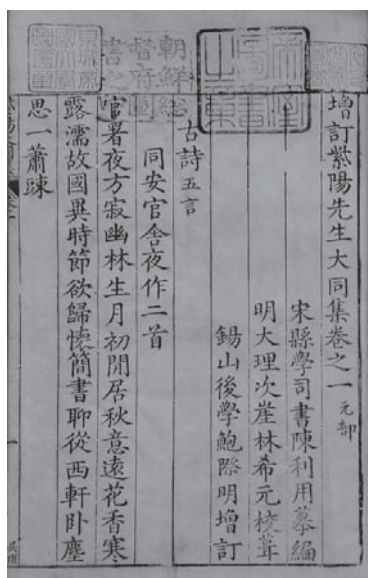 增訂紫陽先生大同集卷之一 元部
宋縣學司書陳利用摹編
明大理次崖林希元校葺
錫山後學鮑際明增訂
古詩 五言
同安官舍夜作二首
官署夜方寂幽林生月初閒居秋意遠花香寒
露濡故國異時節欲歸懷簡書聊從西軒卧塵
思一蕭疎
朝鮮總
督府圖
書之印
一